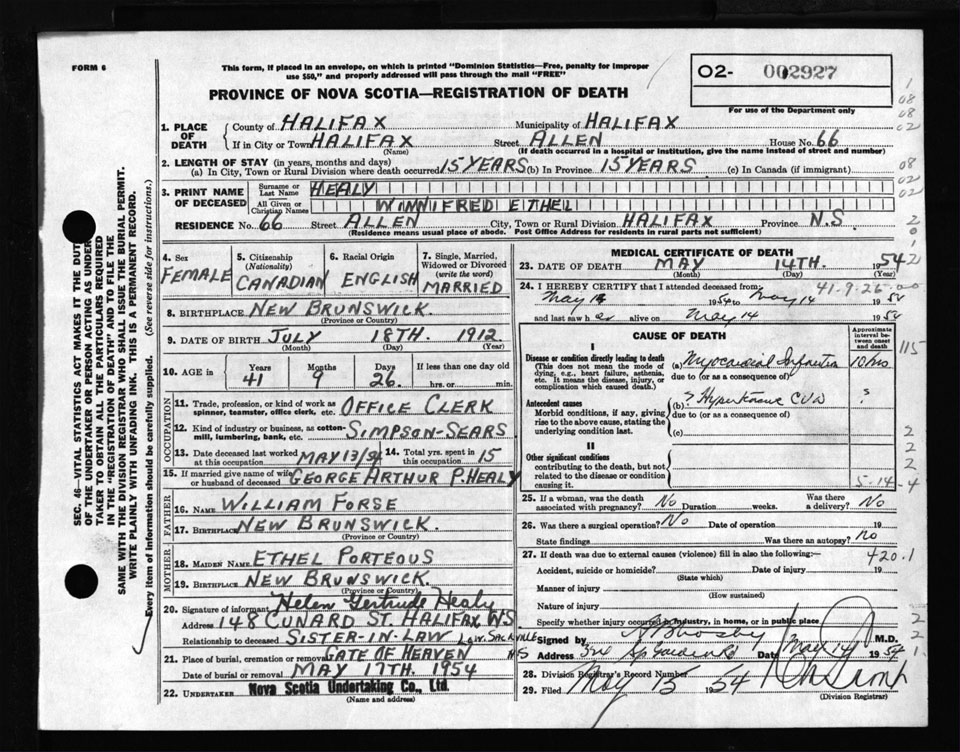 FORM 6
This form, if placed in an envelope, on which is printed "Dominion Statistics—Free, penalty for improper
use $50," and properly addressed will pass through the mail "FREE"
PROVINCE OF NOVA SCOTIA—REGISTRATION OF DEATH
02- 002927
For use of the Department only
1. PLACE OF DEATH County of HALIFAX Municipality of HALIFAX
If in City or Town HALIFAX (Name) Street ALLEN House No. 66
(If death occurred in a hospital or institution, give the name instead of street and number)
2. LENGTH OF STAY (in years, months and days)
(a) In City, Town or Rural Division where death occurred 15 YEARS (b) In Province 15 YEARS (c) In Canada (if immigrant)
3. PRINT NAME OF DECEASED Surname or Last Name HEALY
All Given or Christian Names WINNIFRED ETHEL
RESIDENCE No. 66 Street ALLEN City, Town or Rural Division HALIFAX Province N.S
(Residence means usual place of abode. Post Office Address for residents in rural parts not sufficient)
4. Sex FEMALE
5. Citizenship (Nationality) CANADIAN
6. Racial Origin ENGLISH
7. Single, Married, Widowed or Divorced (write the word) MARRIED
8. BIRTHPLACE NEW BRUNSWICK.
(Province or Country)
9. DATE OF BIRTH JULY 18TH. 1912
(Month) (Day) (Year)
10. AGE in Years 41 Months 9 Days 26. If less than one day hrs. or min.
OCCUPATION
11. Trade, profession, or kind of work as spinner, teamster, office clerk, etc. OFFICE CLERK
12. Kind of industry or business, as cotton-mill, lumbering, bank, etc. SIMPSON-SEARS
13. Date deceased last worked at this occupation MAY 13/54 14. Total yrs. spent in this occupation 15
15. If married give name of wife or husband of deceased GEORGE ARTHUR P. HEALY
FATHER
16. Name WILLIAM FORSE
17. Birthplace NEW BRUNSWICK.
(Province or Country)
MOTHER
18. Maiden Name ETHEL PORTEOUS
19. Birthplace NEW BRUNSWICK.
(Province or Country)
20. Signature of informant Helen Gertrude Healy
Address 148 CUNARD ST. HALIFAX N.S
Relationship to deceased SISTER-IN-LAW
LOW. SACKVILLE
21. Place of burial, cremation or removal GATE OF HEAVEN NS
Date of burial or removal MAY 17TH. 1954
22. UNDERTAKER Nova Scotia Undertaking Co., Ltd.
(Name and address)
MEDICAL CERTIFICATE OF DEATH
23. DATE OF DEATH MAY 14TH. 1954
(Month) (Day) (Year)
24. I HEREBY CERTIFY that I attended deceased from: 41-9-26-00
May 1954 to May 14 1954
and last saw her alive on May 14 1954
CAUSE OF DEATH
Approximate interval between onset and death
I
Disease or condition directly leading to death
(This does not mean the mode of dying, e.g., heart failure, asthenia, etc. It means the disease, injury, or complication which caused death.)
(a) Myocardial Infarction 10 hrs
due to (or as a consequence of)
Antecedent causes
Morbid conditions, if any, giving rise to the above cause, stating the underlying condition last.
(b) ? CVD ?
due to (or as a consequence of)
(c)
II
Other significant conditions contributing to the death, but not related to the disease or condition causing it.
5-14-4
25. If a woman, was the death associated with pregnancy? No Duration weeks. Was there a delivery? No
26. Was there surgical operation? No Date of operation 19
State findings Was there an autopsy? No
27. If death was due to external causes (violence) fill in also the following:— 420.1
Accident, suicide or homicide? Date of injury 19
(State which)
Manner of injury
(How sustained)
Nature of injury
Specify whether injury occurred in industry, in home, or in public place
Signed by M.D.
Address Date May 14 1954
28. Division Registrar's Record Number
29. Filed May 15 1954
(Division Registrar)
SEC. 46—VITAL STATISTICS ACT MAKES IT THE DUTY
OF THE UNDERTAKER OR PERSON ACTING AS UNDER-
TAKER TO OBTAIN ALL THE PARTICULARS REQUIRED
IN THE "REGISTRATION OF DEATH" AND TO FILE THE
SAME WITH THE DIVISION REGISTRAR WHO SHALL ISSUE THE BURIAL PERMIT.
WRITE PLAINLY WITH UNFADING INK. THIS IS A PERMANENT RECORD.
Every item of information should be carefully supplied. (See reverse side for instructions.)
1
08
08
02
08
02
2
0
1
2
115
2
2
2
2
2
1